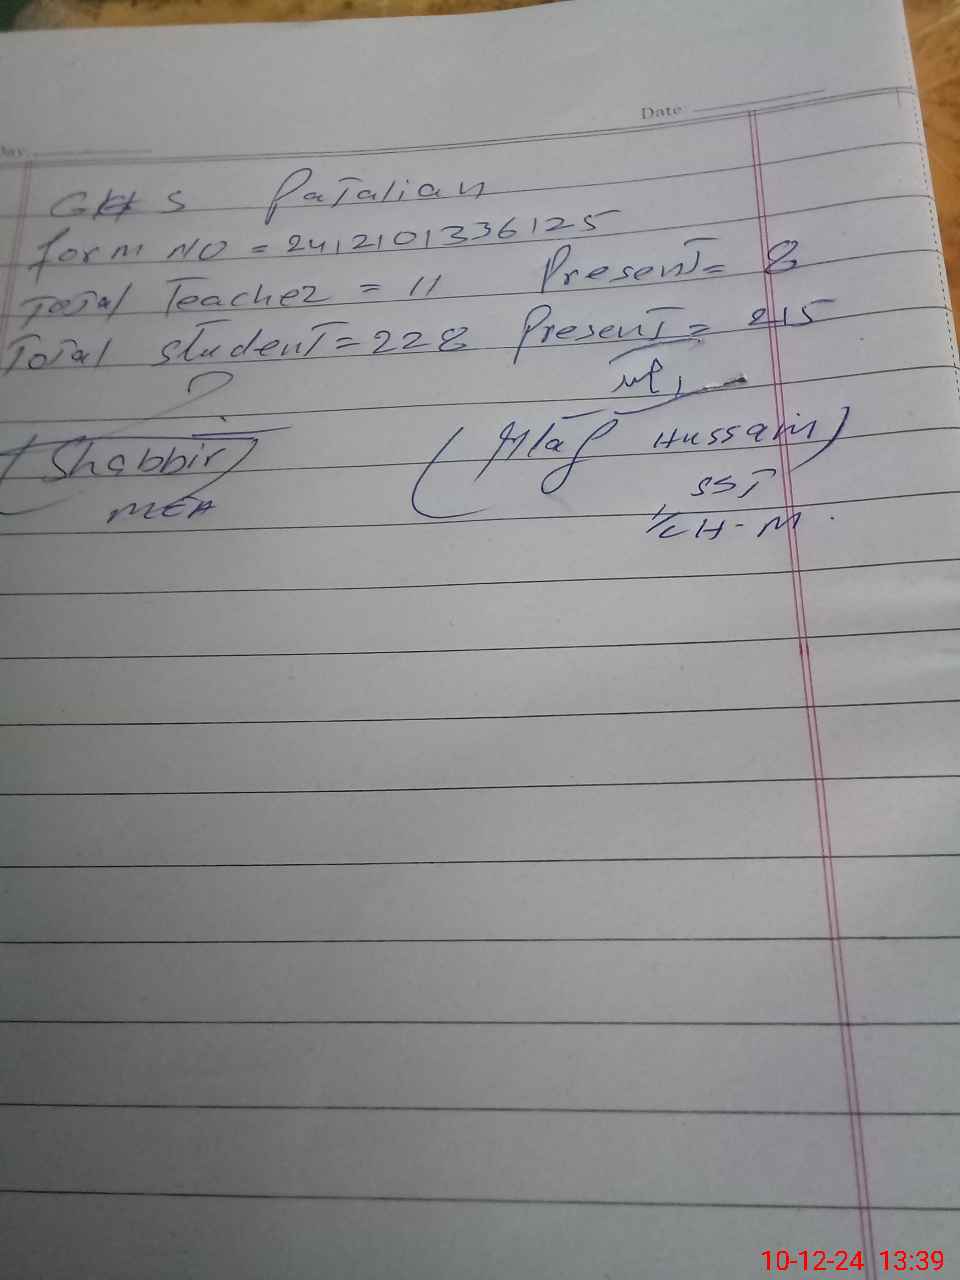 Date
GHS Patalian
form NO = 2412101336125
Total Teacher = 11 Present = 8
Total student = 228 Present = 215
(Shabbir) Hussain)
MEA SST
I/C H-M.
10-12-24 13:39